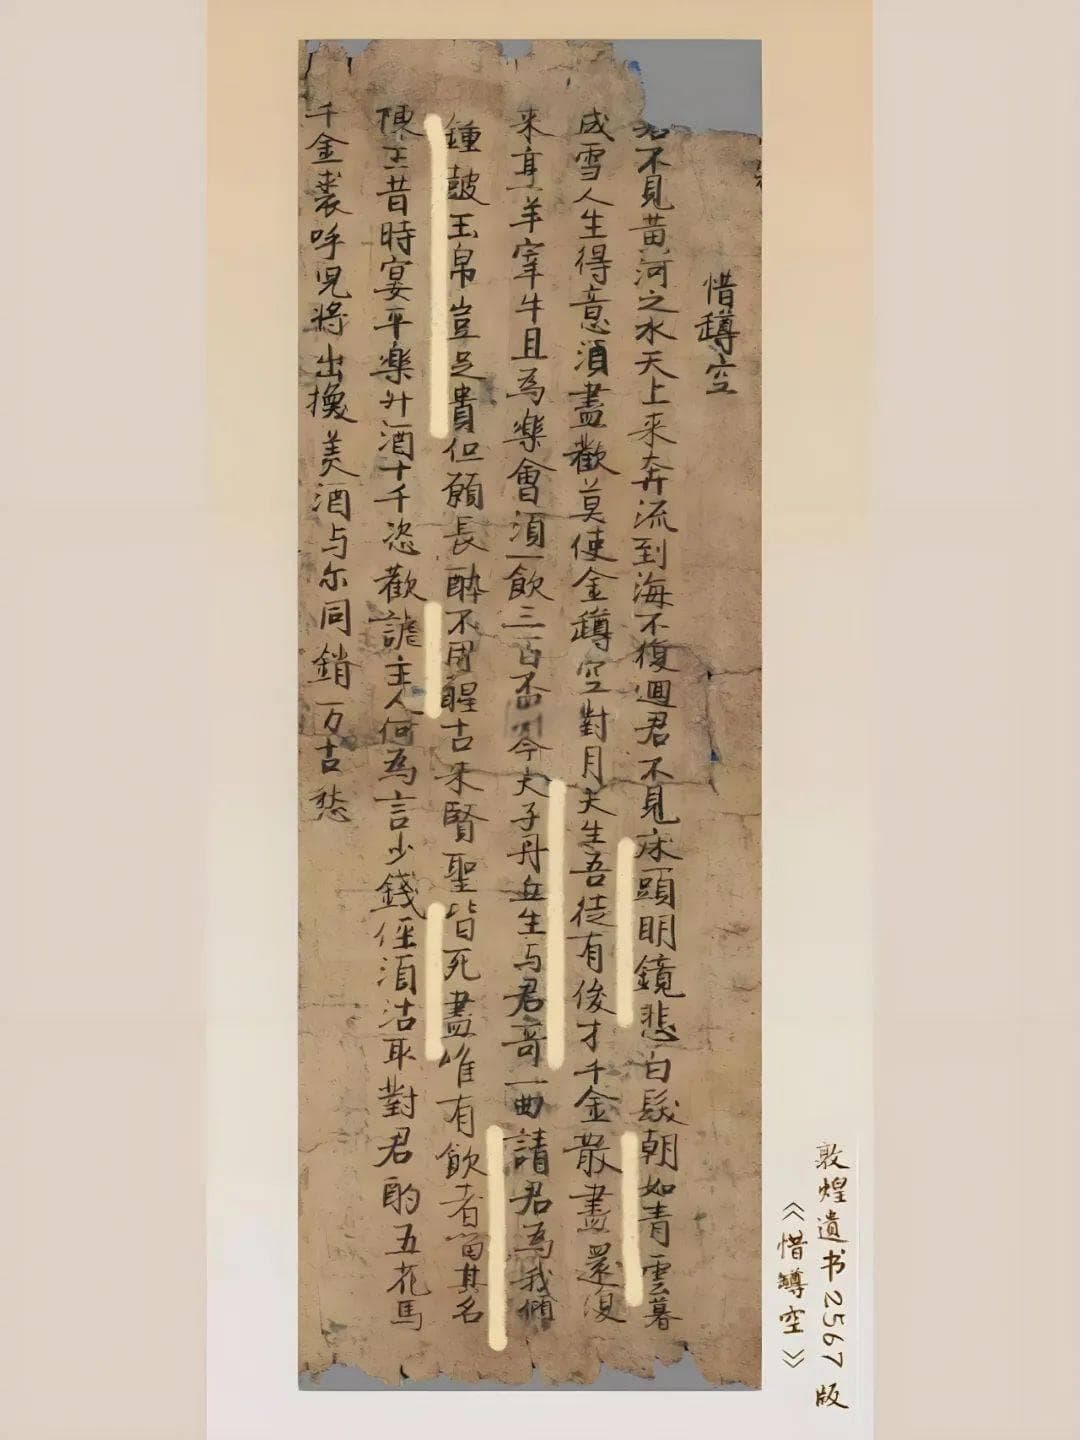 惜罇空
君不見黄河之水天上来奔流到海不復迴君不見床頭明鏡悲白髮朝如青雲暮
成雪人生得意須盡歡莫使金罇空對月天生吾徒有俊才千金散盡還復
来烹羊宰牛且為樂會須一飲三百盃岑夫子丹丘生与君哥一曲請君為我傾
鍾皷玉帛豈足貴但願長醉不用醒古来賢聖皆死盡唯有飲者留其名
陳王昔時宴平樂斗酒十千恣歡謔主人何為言少錢徑須沽取對君酌五花馬
千金裘呼児將出換美酒与尓同銷万古愁
敦煌遺书2567版
《惜罇空》